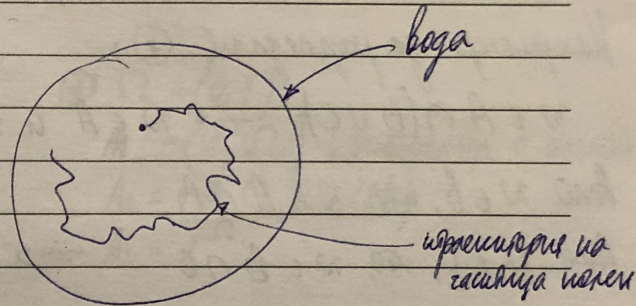 вода
траектория на
частица полен